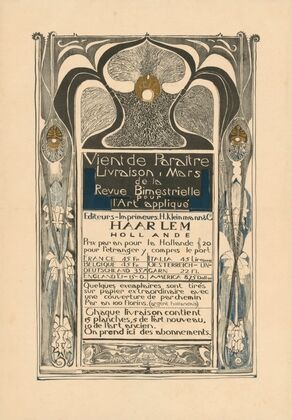 Vient de Paraître
Livraison 1 Mars
de la
Revue Bimestrielle
pour
l'Art appliqué
Editeurs-Imprimeurs, H. Kleinmann & C°
HAARLEM
HOLLANDE
Prix par an pour la Hollande f 20
pour l'etranger y compris le port
FRANCE 45 Fr. ITALIA 45
BELGIQUE 43 Fr. OESTERREICH-UN-
DEUTSCHLAND 35 GARN 22 Fl.
ENGLAND £1-15-0. AMERICA 8.75
Quelques exemplaires, sont tirés
sur papier extraordinaire avec
une couverture de parchemin
Par an 100 florins (argent hollandais)
Chaque livraison contient
15 planches, 5 de l'art nouveau,
10 de l'art ancien.
On prend ici des abonnements.